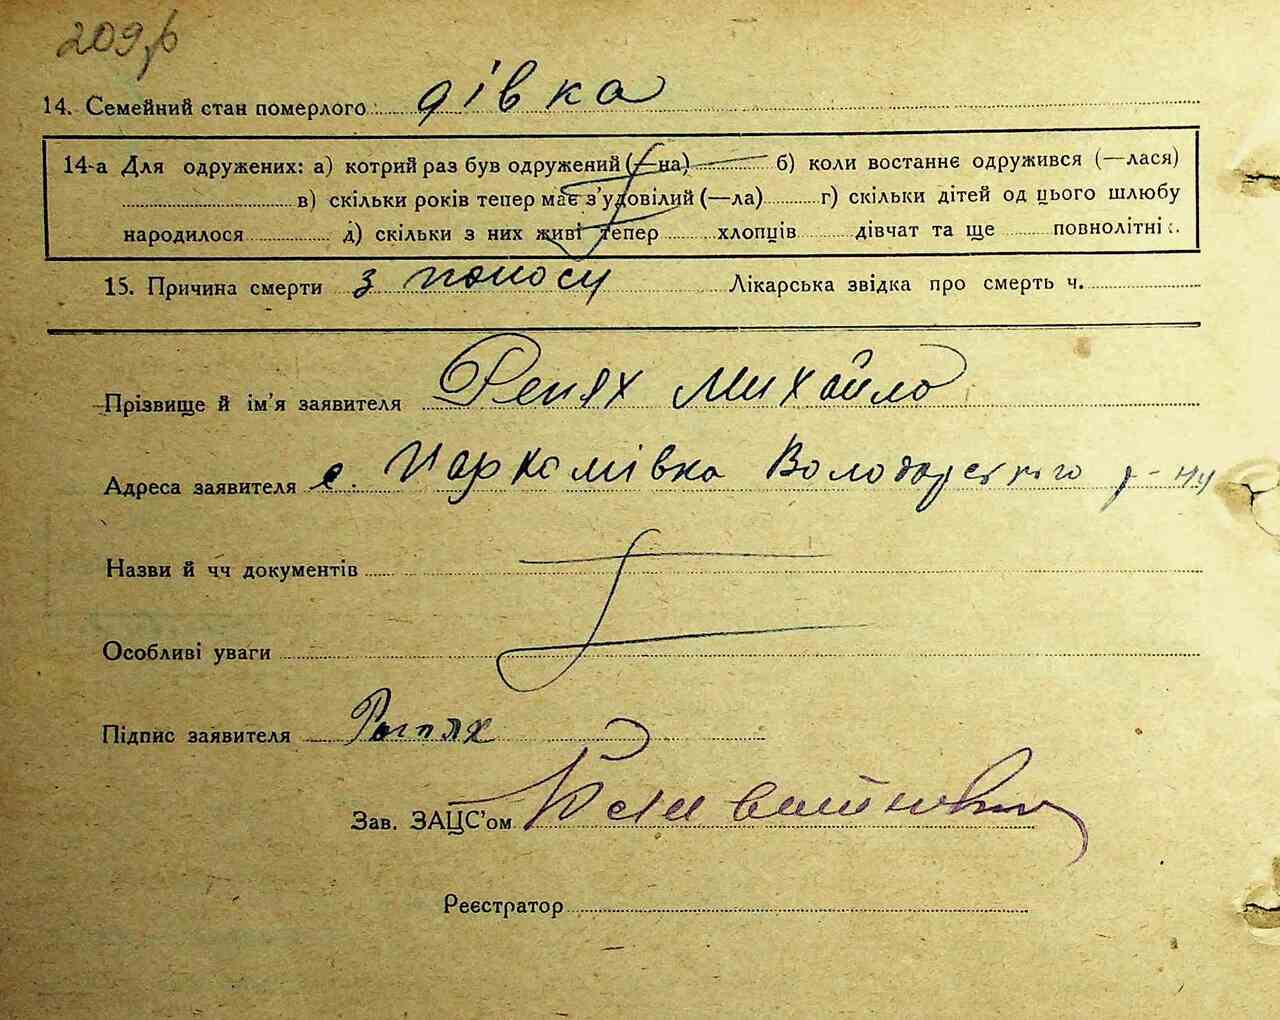 209
14. Семейний стан померлого дівка
14-а Для одружених: а) котрий раз був одружений (—на) б) коли востаннє одружився (—лася)
в) скільки років тепер має з'удовілий (—ла) г) скільки дітей од цього шлюбу
народилося д) скільки з них живі тепер хлопців дівчат та ще повнолітніх.
15. Причина смерти з поносу Лікарська звідка про смерть ч.
Прізвище й ім'я заявителя Репях Михайло
Адреса заявителя с. Пархомівка Володарського р-ну
Назви й чч документів
Особливі уваги
Підпис заявителя Репях
Зав. ЗАЦС'ом
Реєстратор